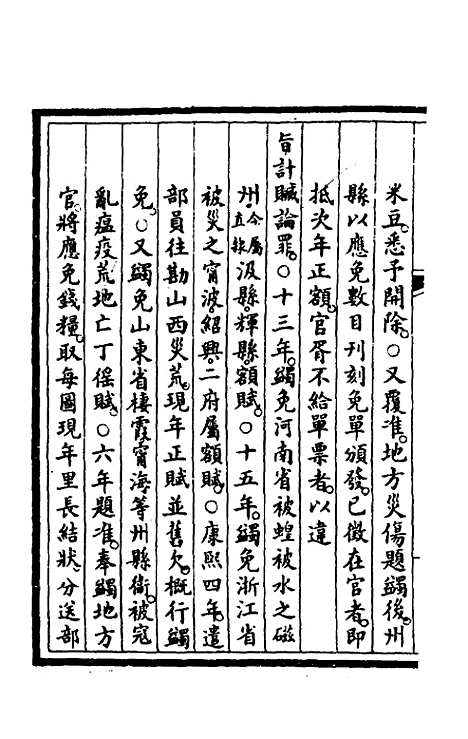 米豆。悉予開除。○又覆准。地方災傷題蠲後。州
縣以應免數目刊刻免單頒發。已徵在官者。即
抵次年正額。官胥不給單票者。以違
旨計贓論罪。○十三年。蠲免河南省被蝗被水之磁
州今屬直隸汲縣。輝縣。額賦。○十五年。蠲免浙江省
被災之甯波。紹興。二府屬額賦。○康熙四年。遣
部員往勘山西災荒。現年正賦並舊欠。概行蠲
免。○又蠲免山東省棲霞甯海等州縣衞。被寇
亂瘟疫荒地亡丁徭賦。○六年題准。奉蠲地方
官。將應免錢糧。取每圖現年里長結狀。分送部